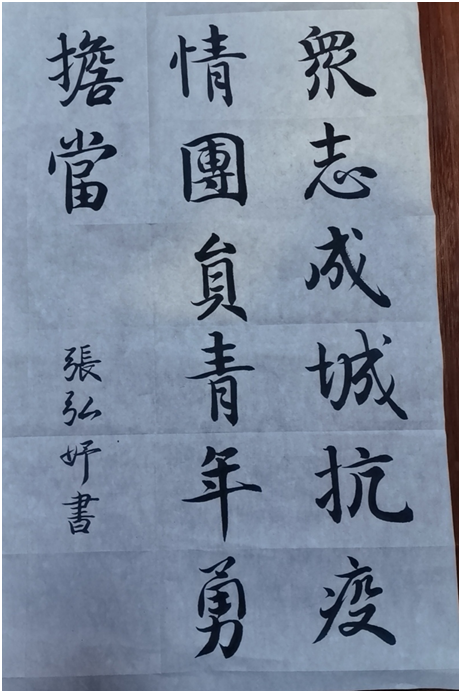 衆志成城抗疫
情團員青年勇
擔當
張弘妤書